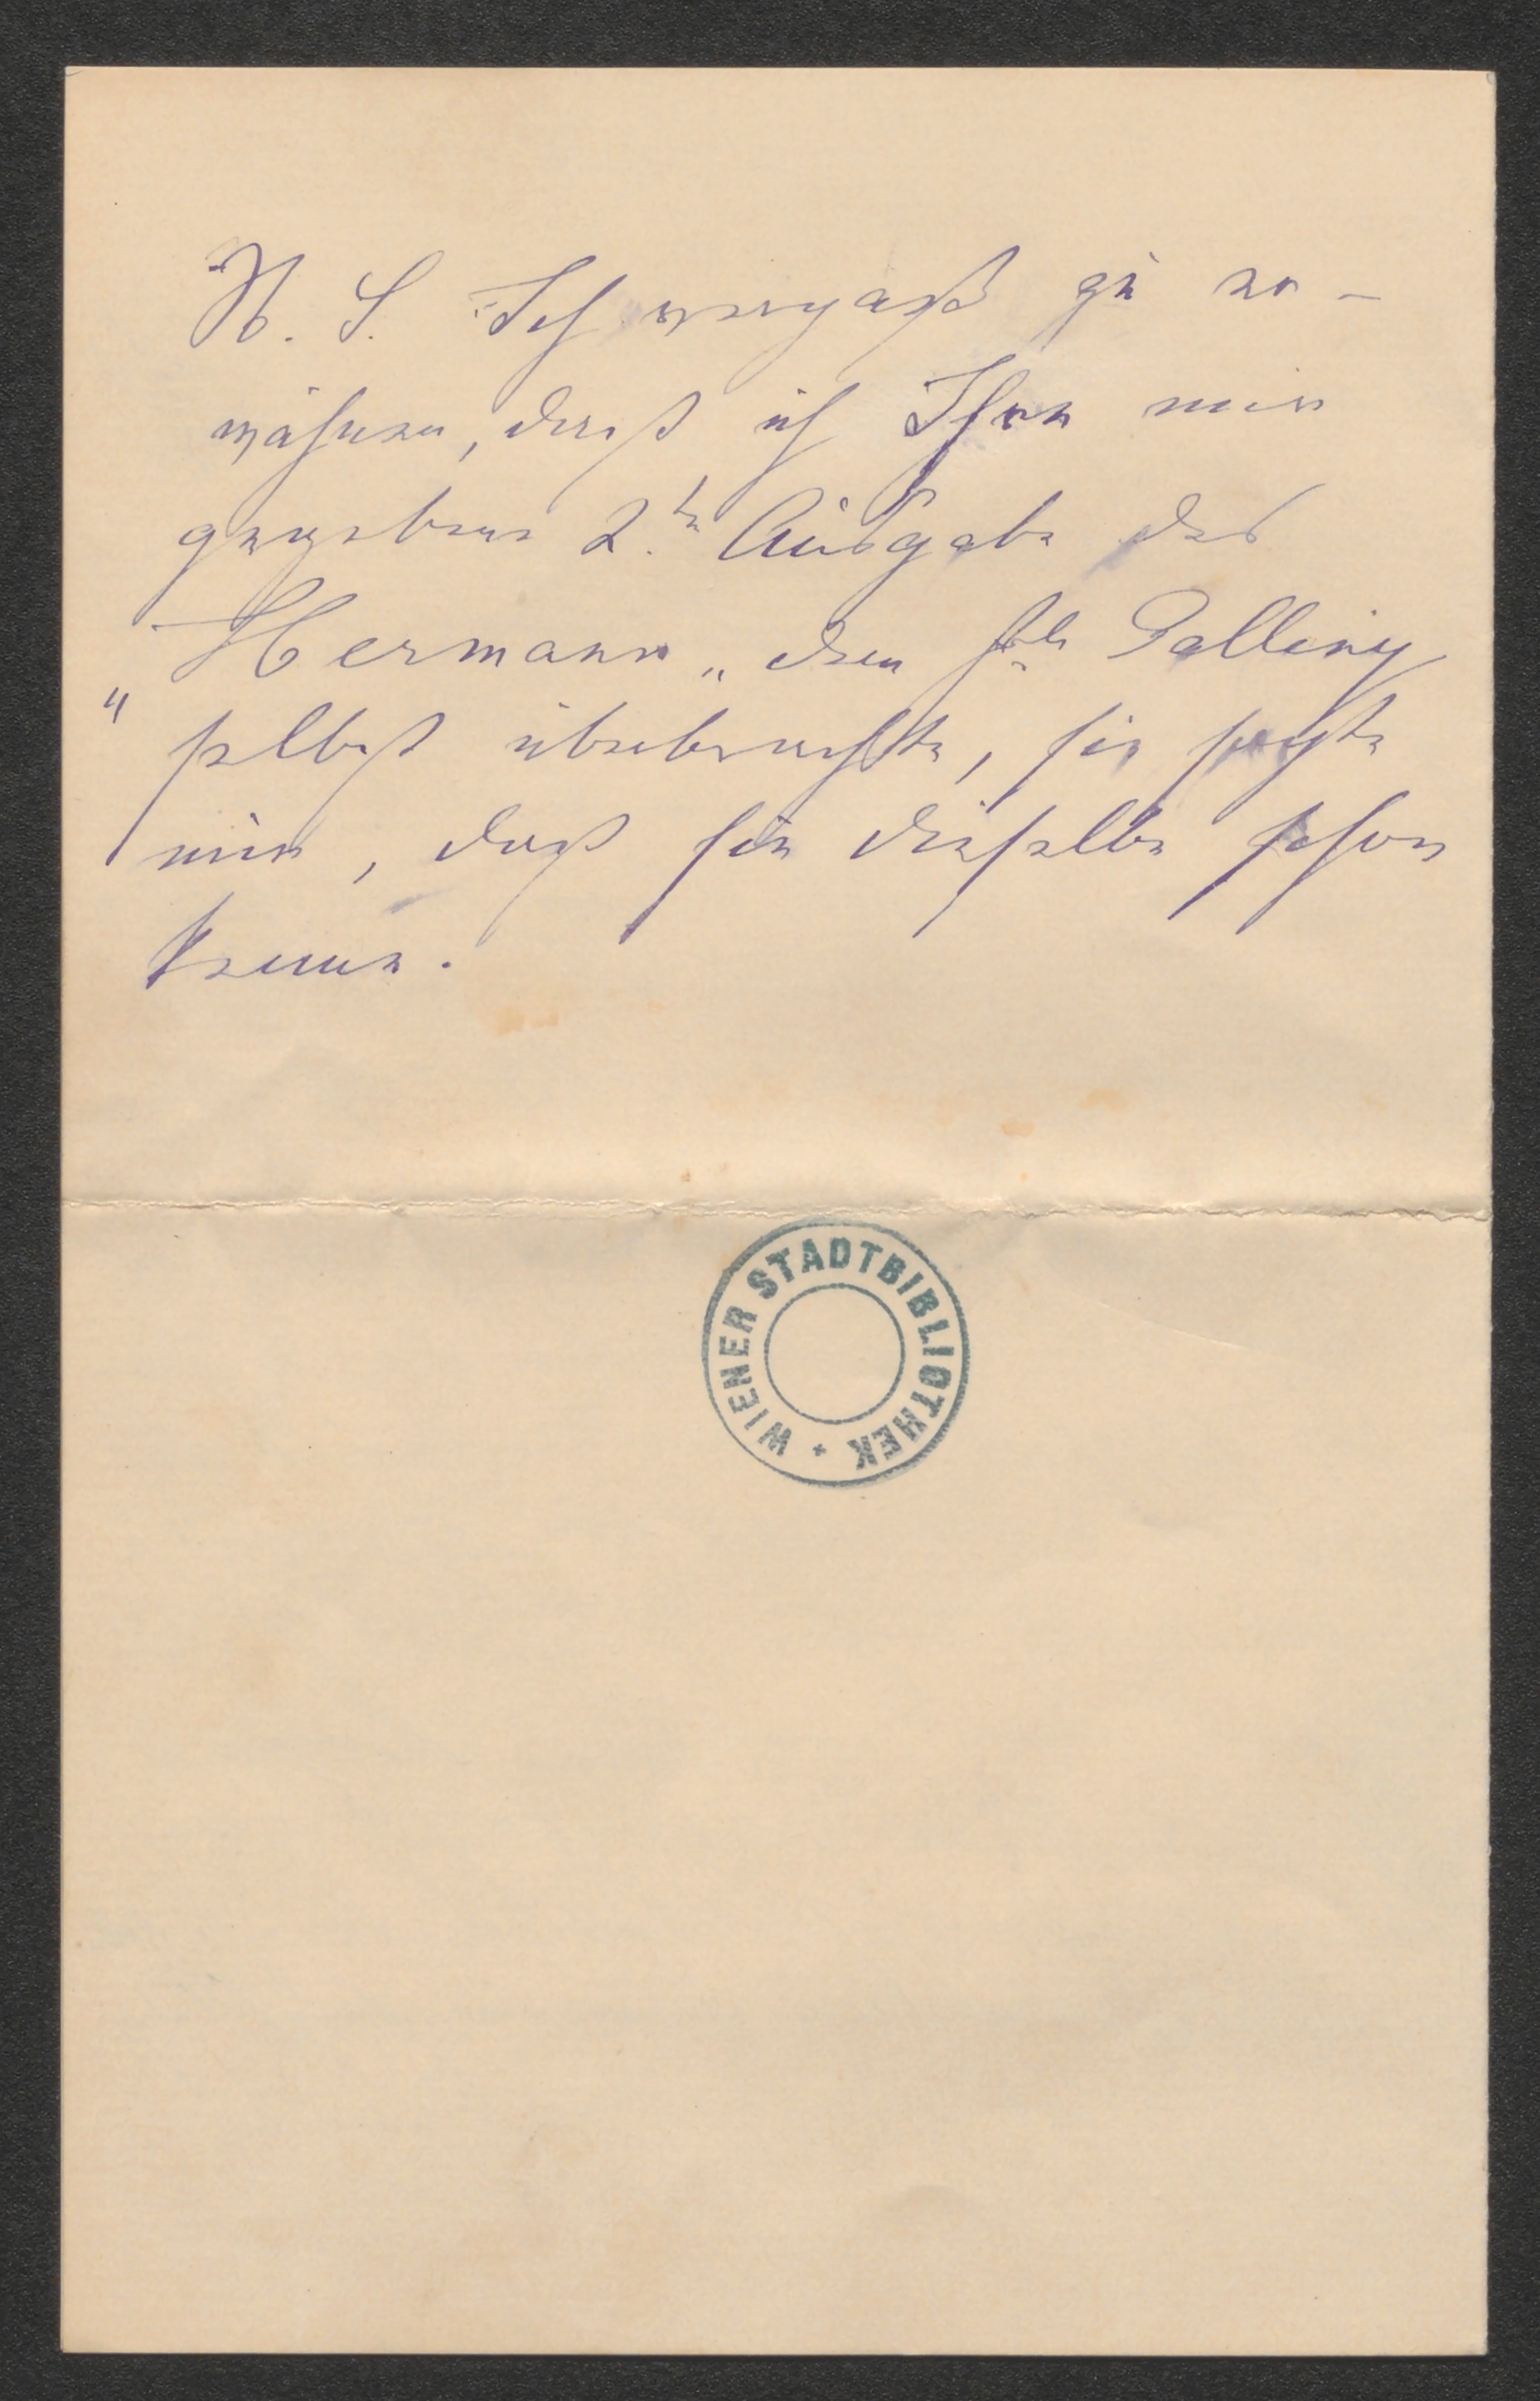 N. S. Ich vergaß zu er-
wähnen, daß ich Ihre mir
gegebene 2.te Ausgabe des
"Hermann" dem Frl.
selbst überbrachte, sie sagte
mir, daß sie dieselbe schon
kenne.
WIENER STADTBIBLIOTHEK *